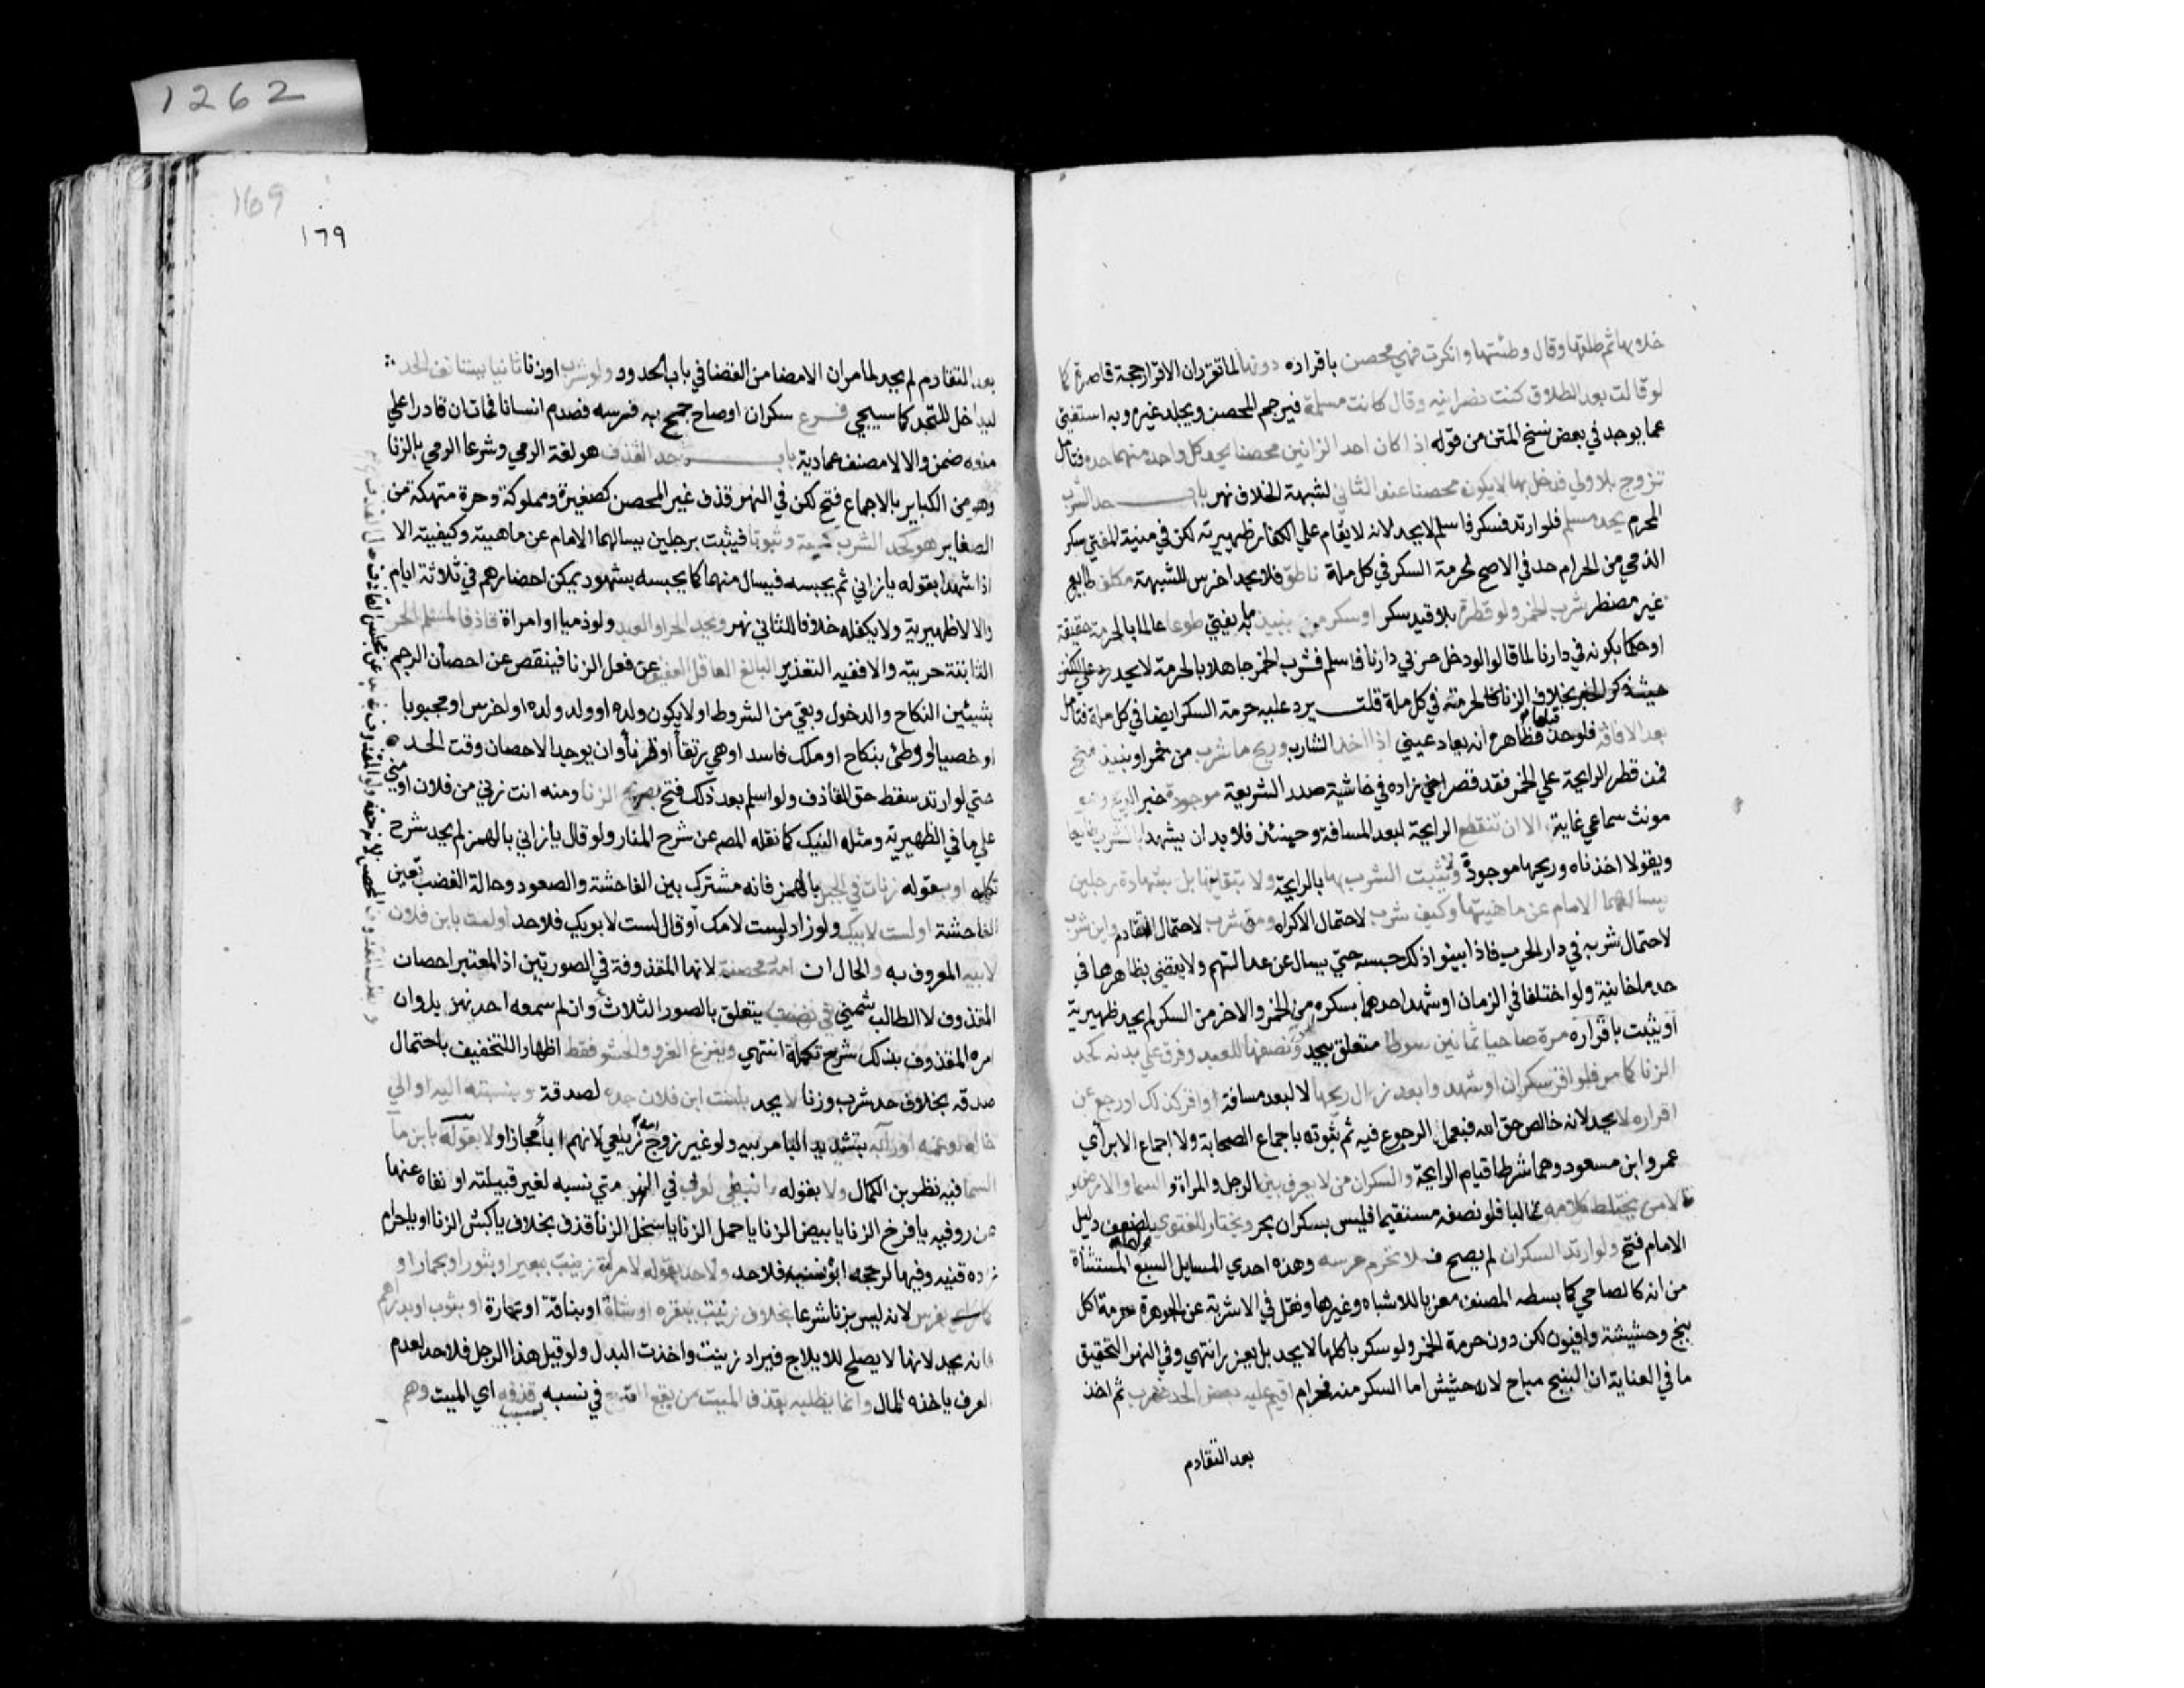 خلا بها ثم طلقها وقال وطئتها وانكرت فهي محصن باقراره دونها لما تقرر ان الاقرار حجة قاصرة كما
لو قالت بعد الطلاق كنت نصرانية وقال كانت مسلمة فيرجم المحصن ويجلد غيره وبه استغني
عما يوجد في بعض نسخ المتن من قوله اذا كان احد الزانيين محصنا يحد كل واحد منهما حده فتامل
تزوج بلا ولي فدخل بها لا يكون محصنا عند الثاني لشبهة الخلاف نهر باب حد الشرب
المحرم يحد مسلم فلو ارتد فسكر فاسلم لا يحد لانه لا يقام علي الكفار ظهيرية لكن في منية المفتي سكر
الذمي من الحرام حد في الاصح لحرمة السكر في كل ملة ناطق فلا يحد اخرس للشبهة مكلف طايع
غير مضطر شرب الخمر ولو قطرة بلا قيد سكر او سكر من نبيذ ما به يفتي طوعا عالما بالحرمة حقيقة
او حكما بكونه في دارنا لما قالوا لو دخل حربي دارنا فاسلم فشرب الخمر جاهلا بالحرمة لا يحد
بخلاف الزنا لحرمته في كل ملة قلت يرد عليه حرمة السكر ايضا في كل ملة فتامل
بعد الافاقة فلو حد قبلها فظاهره انه يعاد عيني اذا اخذ الشارب وريح ما شرب من خمر او نبيذ فتح
فمن قصر الرايحة علي الخمر فقد قصر اخي زاده في حاشية صدر الشريعة موجودة خبر الريح وهو
مونث سماعي غاية الا ان تنقطع الرايحة لبعد المسافة وحينئذ فلا بد ان يشهدا بالشرب طايعا
ويقولا اخذناه وريحها موجودة ولا يثبت الشرب بها بالرايحة ولا بتقايئها بل بشهادة رجلين
يسالهما الامام عن ماهيتها وكيف شرب لاحتمال الاكراه ومتي شرب لاحتمال التقادم واين شرب
لاحتمال شربه في دار الحرب فاذا بينوا ذلك حبسه حتي يسال عن عدالتهم ولا يقضي بظاهرها في
حد ما خانية ولو اختلفا في الزمان او شهد احدهما بسكره من الخمر والاخر من السكر لم يحد ظهيرية
او يثبت باقراره مرة صاحيا ثمانين سوطا متعلق بيحد ونصفها للعبد وفرق علي بدنه كحد
الزنا كما مر فلو اقر سكران او شهدوا بعد زوال ريحها لا لبعد مسافة او اقر كذلك او رجع عن
اقراره لا يحد لانه خالص حق الله فيعمل الرجوع فيه ثم ثبوته باجماع الصحابة ولا اجماع الا براي
عمر وابن مسعود وهما شرطا قيام الرايحة والسكران من لا يفرق بين الرجل والمراة والسما والارض و
قالا من يختلط كلامه غالبا فلو نصفه مستقيما فليس بسكران بحر ويختار للفتوي لضعف دليل
الامام فتح ولو ارتد السكران لم يصح فلا تحرم عرسه وهذه احدي المسايل السبع المستثناة
من انه كالصاحي كما بسطه المصنف معزيا للاشباه وغيرها ونقل في الاشربة عن الجوهرة حرمة اكل
بنج وحشيشة وافيون لكن دون حرمة الخمر ولو سكر باكلها لا يحد بل يعزر انتهي وفي النهر التحقيق
ما في العناية ان البنج مباح لانه حشيش اما السكر منه فحرام اقيم عليه بعض الحد فهرب ثم اخذ
بعد التقادم
1262
169
١٦٩
بعد التقادم لم يحد لما مر ان الامضا من القضا في باب الحدود ولو شرب او زنا ثانيا يستانف الحد
لتداخل المتحد كما سيجي فرع سكران او صاح جمح به فرسه فصدم انسانا فمات ان قادرا علي
منعه ضمن والا لا مصنف عمادية باب حد القذف هو لغة الرمي وشرعا الرمي بالزنا
وهو من الكباير بالاجماع فتح لكن في النهر قذف غير المحصن كصغيرة ومملوكة وحرة متهتكة من
الصغاير هو كحد الشرب كمية وثبوتا فيثبت برجلين يسالهما الامام عن ماهيته وكيفيته الا
اذا شهدا بقوله يا زاني ثم يحبسه فيسال منهما كما يحبسه بشهود يمكن احضارهم في ثلاثة ايام
والا لا ظهيرية ولا يكفله خلافا للثاني نهر ويحد الحر او العبد ولو ذميا او امراة قاذف المسلم الحر
الثابتة حريته والا ففيه التعذير البالغ العاقل العفيف عن فعل الزنا فينقص عن احصان الرجم
بشيئين النكاح والدخول وبقي من الشروط ان لا يكون ولده او ولد ولده او اخرس او مجبوبا
او خصيا او وطئ بنكاح او ملك فاسد او هي رتقا او قرنا وان يوجد الاحصان وقت الحد
حتي لو ارتد سقط حق القاذف ولو اسلم بعد ذلك فتح بصريح الزنا ومنه انت ازني من فلان او مني
علي ما في الظهيرية ومثله النيك كما نقله المص عن شرح المنار ولو قال يا زاني بالهمز لم يحد شرح
تكملة او بقوله زنات في الجبل بالهمز فانه مشترك بين الفاحشة والصعود وحالة الغضب تعين
الفاحشة او لست لابيك ولو زاد ولست لامك او قال لست لابويك فلا حد او لست بابن فلان
لابيه المعروف به والحال ان امه محصنة لانها المقذوفة في الصورتين اذ المعتبر احصان
المقذوف لا الطالب شمني في غضب يتعلق بالصور الثلاث وان لم يسمعه احد نهر بل وان
امره المقذوف بذلك شرح تكملة انتهي وينزع الفرو والحشو فقط اظهارا للتخفيف باحتمال
صدقه بخلاف حد شرب وزنا لا يحد بلست ابن فلان جده لصدقه وبنسبته اليه او الي
خاله او عمه او رابه بتشديد البا مربيه ولو غير زوج امه زيلعي لانهم ابا مجازا ولا بقوله يا ابن ما
السما فيه نظر ابن الكمال ولا بقوله يا نبطي لعربي في النهر متي نسبه لغير قبيلته او نفاه عنها
عزر وفيه يا فرخ الزنا يا بيض الزنا يا حمل الزنا يا سخل الزنا قذف بخلاف يا كبش الزنا او يا حرام
زاده قنيه وفيها لو جحد ابوه نسبه فلا حد ولا حد بقوله لامراة زنيت ببعير او بثور او بحمار او
بفرس لانه ليس بزنا شرعا بخلاف زنيت ببقره او شاة او بناقة او حمارة او بثوب او بدراهم
فانه يحد لانها لا يصلح للايلاج فيراد زنيت واخذت البدل ولو قيل هذا لرجل فلا حد لعدم
العرف باخذه المال وانما يطلبه بقذف الميت من يقع القدح في نسبه بسبب قذفه اي الميت وهم